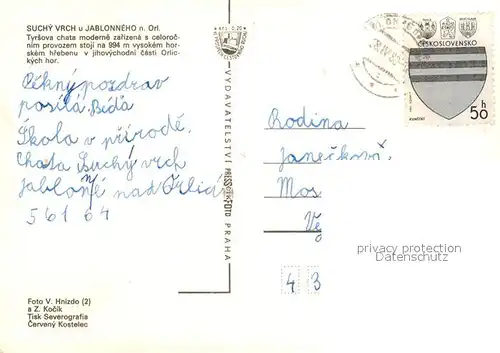 SUCHÝ VRCH u JABLONNÉHO n. Orl.
Tyršova chata moderně zařízená s celoroč-
ním provozem stojí na 994 m vysokém hor-
ském hřebenu v jihovýchodní části Orlic-
kých hor.
Pěkný pozdrav
posílá Béďa
Škola v přírodě.
Chata Suchý vrch
Jablonné nad Orlicí
561 64
Foto V. Hnízdo (2)
a Z. Kočík
Tisk Severografia
Červený Kostelec
VYDAVATELSTVÍ PRESSFOTO PRAHA
ČESKOSLOVENSKO
50 h
Rodina
Janečkovi
Mos
43
privacy protection
Datenschutz